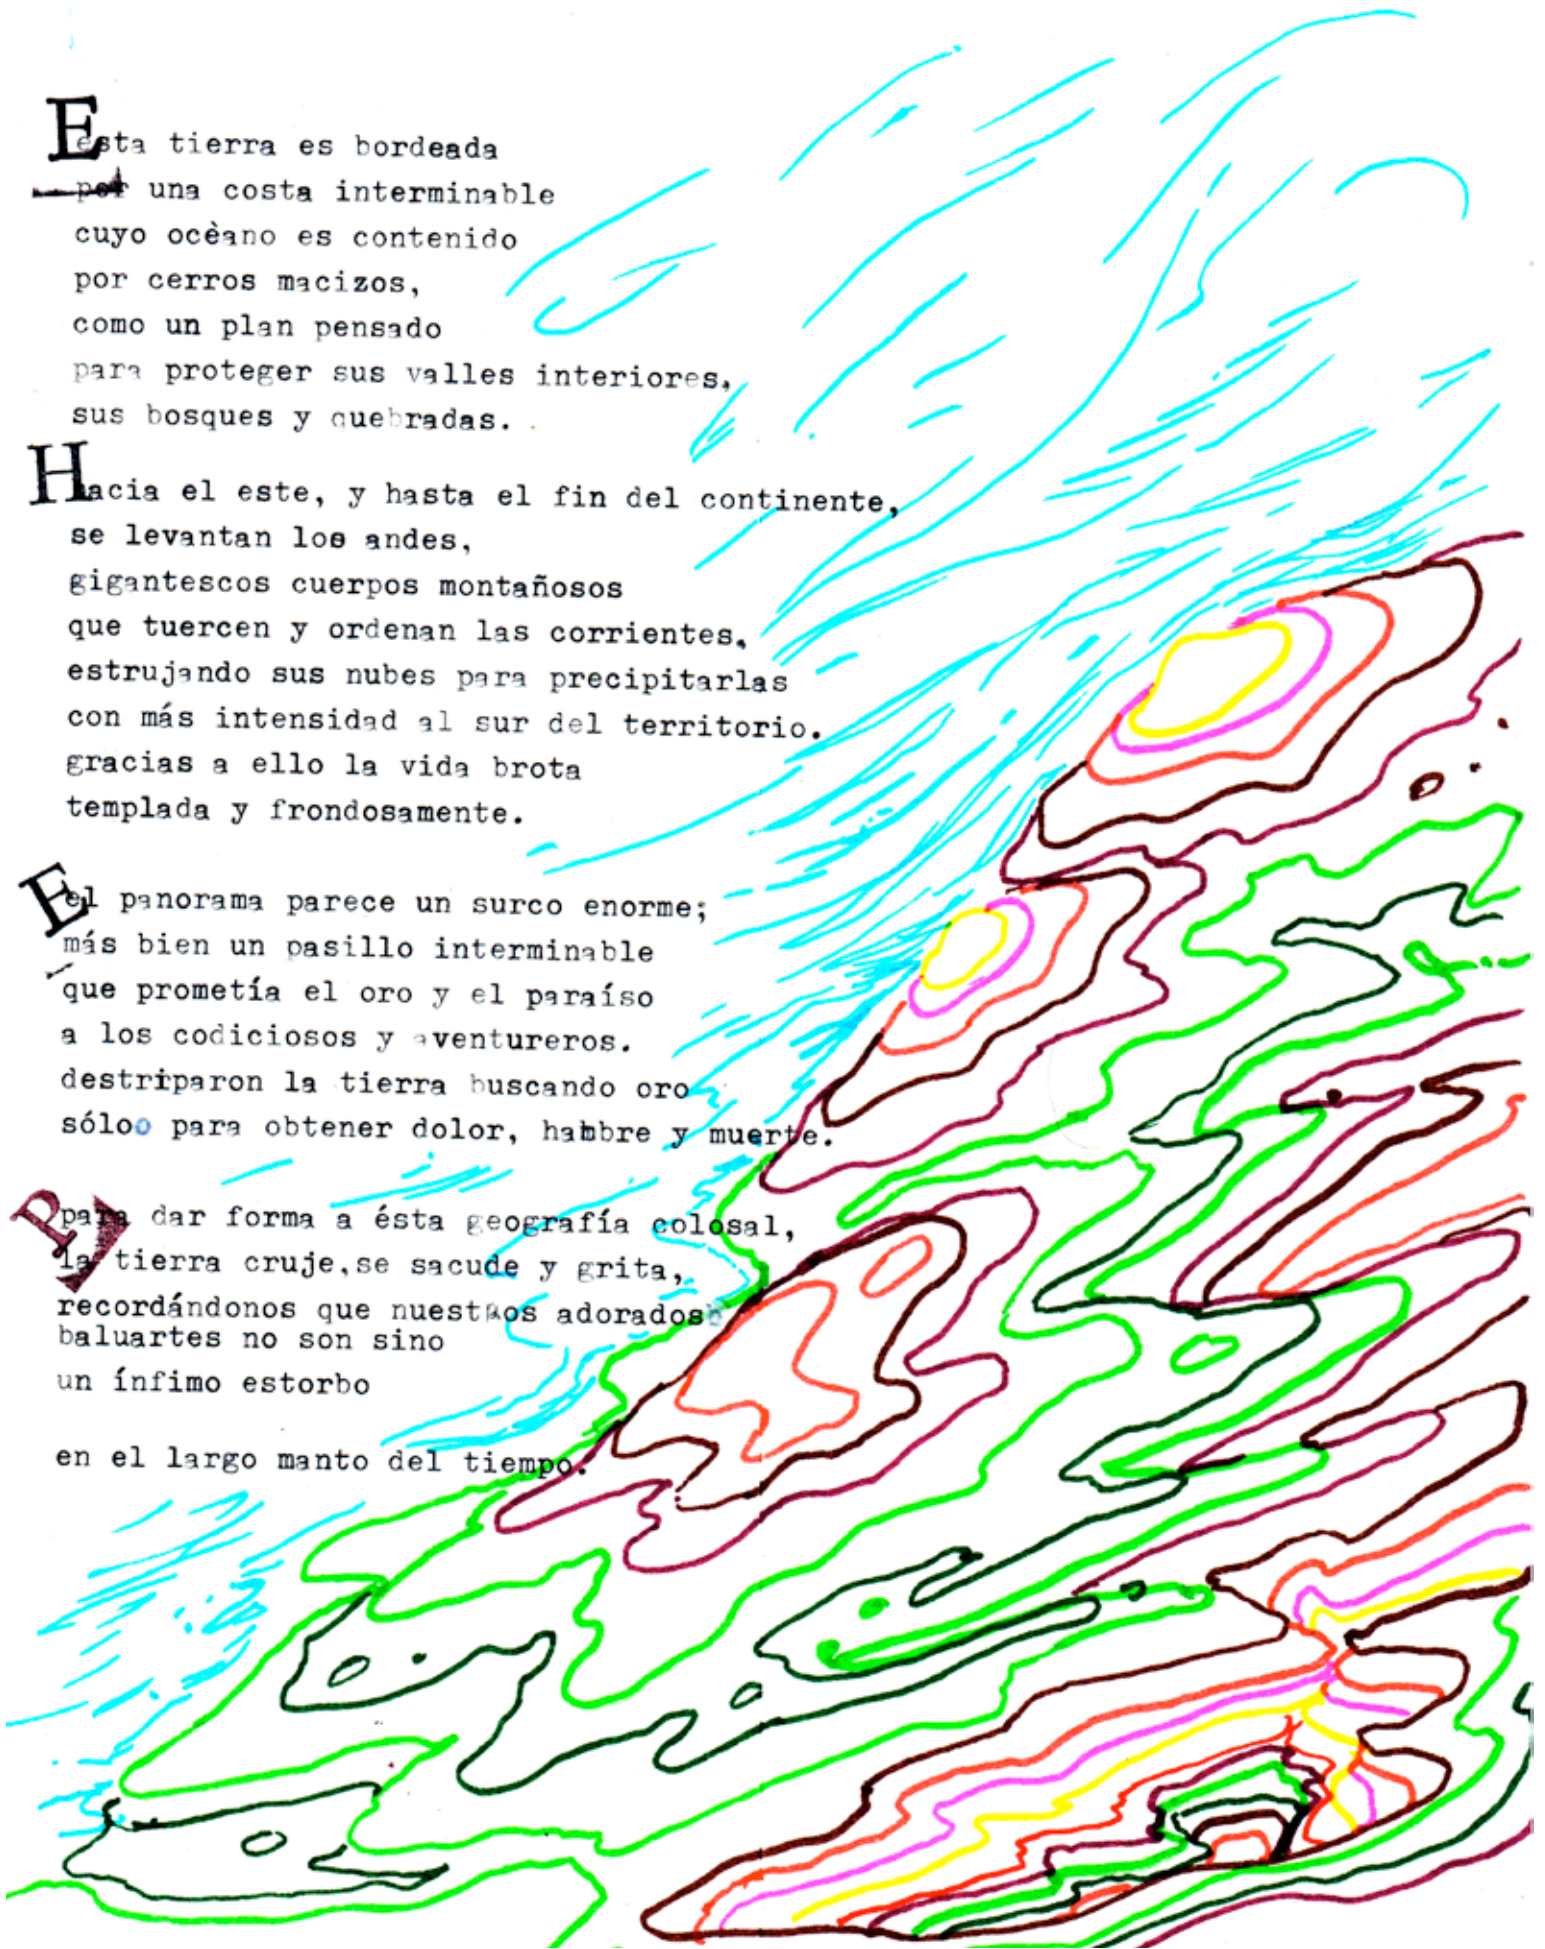 Esta tierra es bordeada
por una costa interminable
cuyo ocèano es contenido
por cerros macizos,
como un plan pensado
para proteger sus valles interiores,
sus bosques y quebradas.
Hacia el este, y hasta el fin del continente,
se levantan los andes,
gigantescos cuerpos montañosos
que tuercen y ordenan las corrientes,
estrujando sus nubes para precipitarlas
con más intensidad al sur del territorio.
gracias a ello la vida brota
templada y frondosamente.
El panorama parece un surco enorme;
más bien un pasillo interminable
que prometía el oro y el paraíso
a los codiciosos y aventureros.
destriparon la tierra buscando oro
sóloo para obtener dolor, hambre y muerte.
Para dar forma a ésta geografía colosal,
la tierra cruje,se sacude y grita,
recordándonos que nuestros adorados
baluartes no son sino
un ínfimo estorbo
en el largo manto del tiempo.